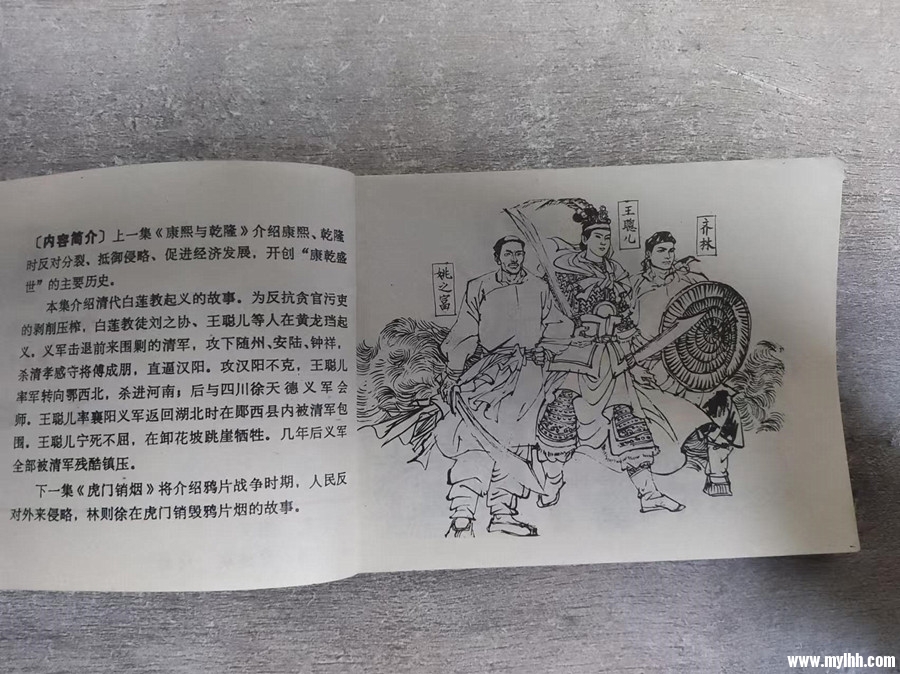 〔内容简介〕上一集《康熙与乾隆》介绍康熙、乾隆
时反对分裂、抵御侵略、促进经济发展，开创“康乾盛
世”的主要历史。
本集介绍清代白莲教起义的故事。为反抗贪官污吏
的剥削压榨，白莲教徒刘之协、王聪儿等人在黄龙垱起
义。义军击退前来围剿的清军，攻下随州、安陆、钟祥，
杀清孝感守将傅成朋，直逼汉阳。攻汉阳不克，王聪儿
率军转向鄂西北，杀进河南；后与四川徐天德义军会
师。王聪儿率襄阳义军返回湖北时在郧西县内被清军包
围。王聪儿宁死不屈，在卸花坡跳崖牺牲。几年后义军
全部被清军残酷镇压。
下一集《虎门销烟》将介绍鸦片战争时期，人民反
对外来侵略，林则徐在虎门销毁鸦片烟的故事。
姚之富
王聪儿
齐林
www.mylhh.com